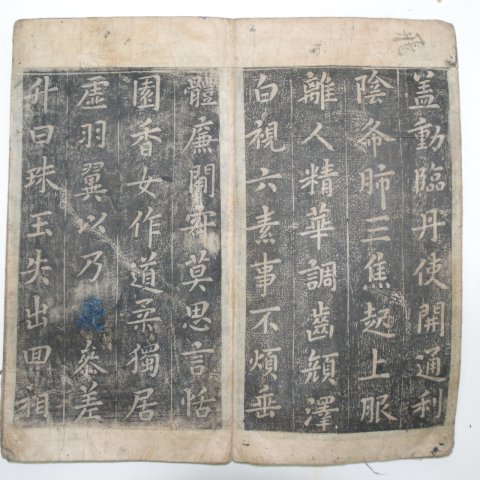 盖動臨丹使開通利
陰肺三焦上服
離人精華調齒顏澤
白視六素事不煩垂
體廉閑安莫思言恬
園香女作道柔獨居
虛羽翼以乃叅差
升曰珠玉失出回相